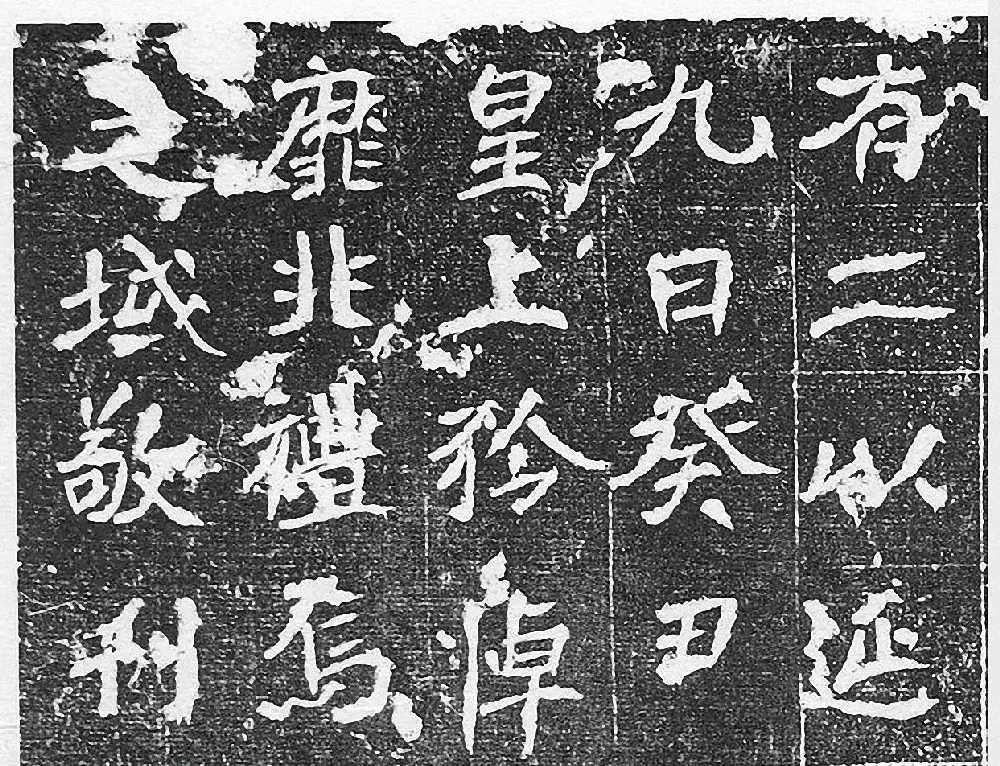 有二以延
九日癸丑
皇上矜悼
靡非禮焉
之域敬刊